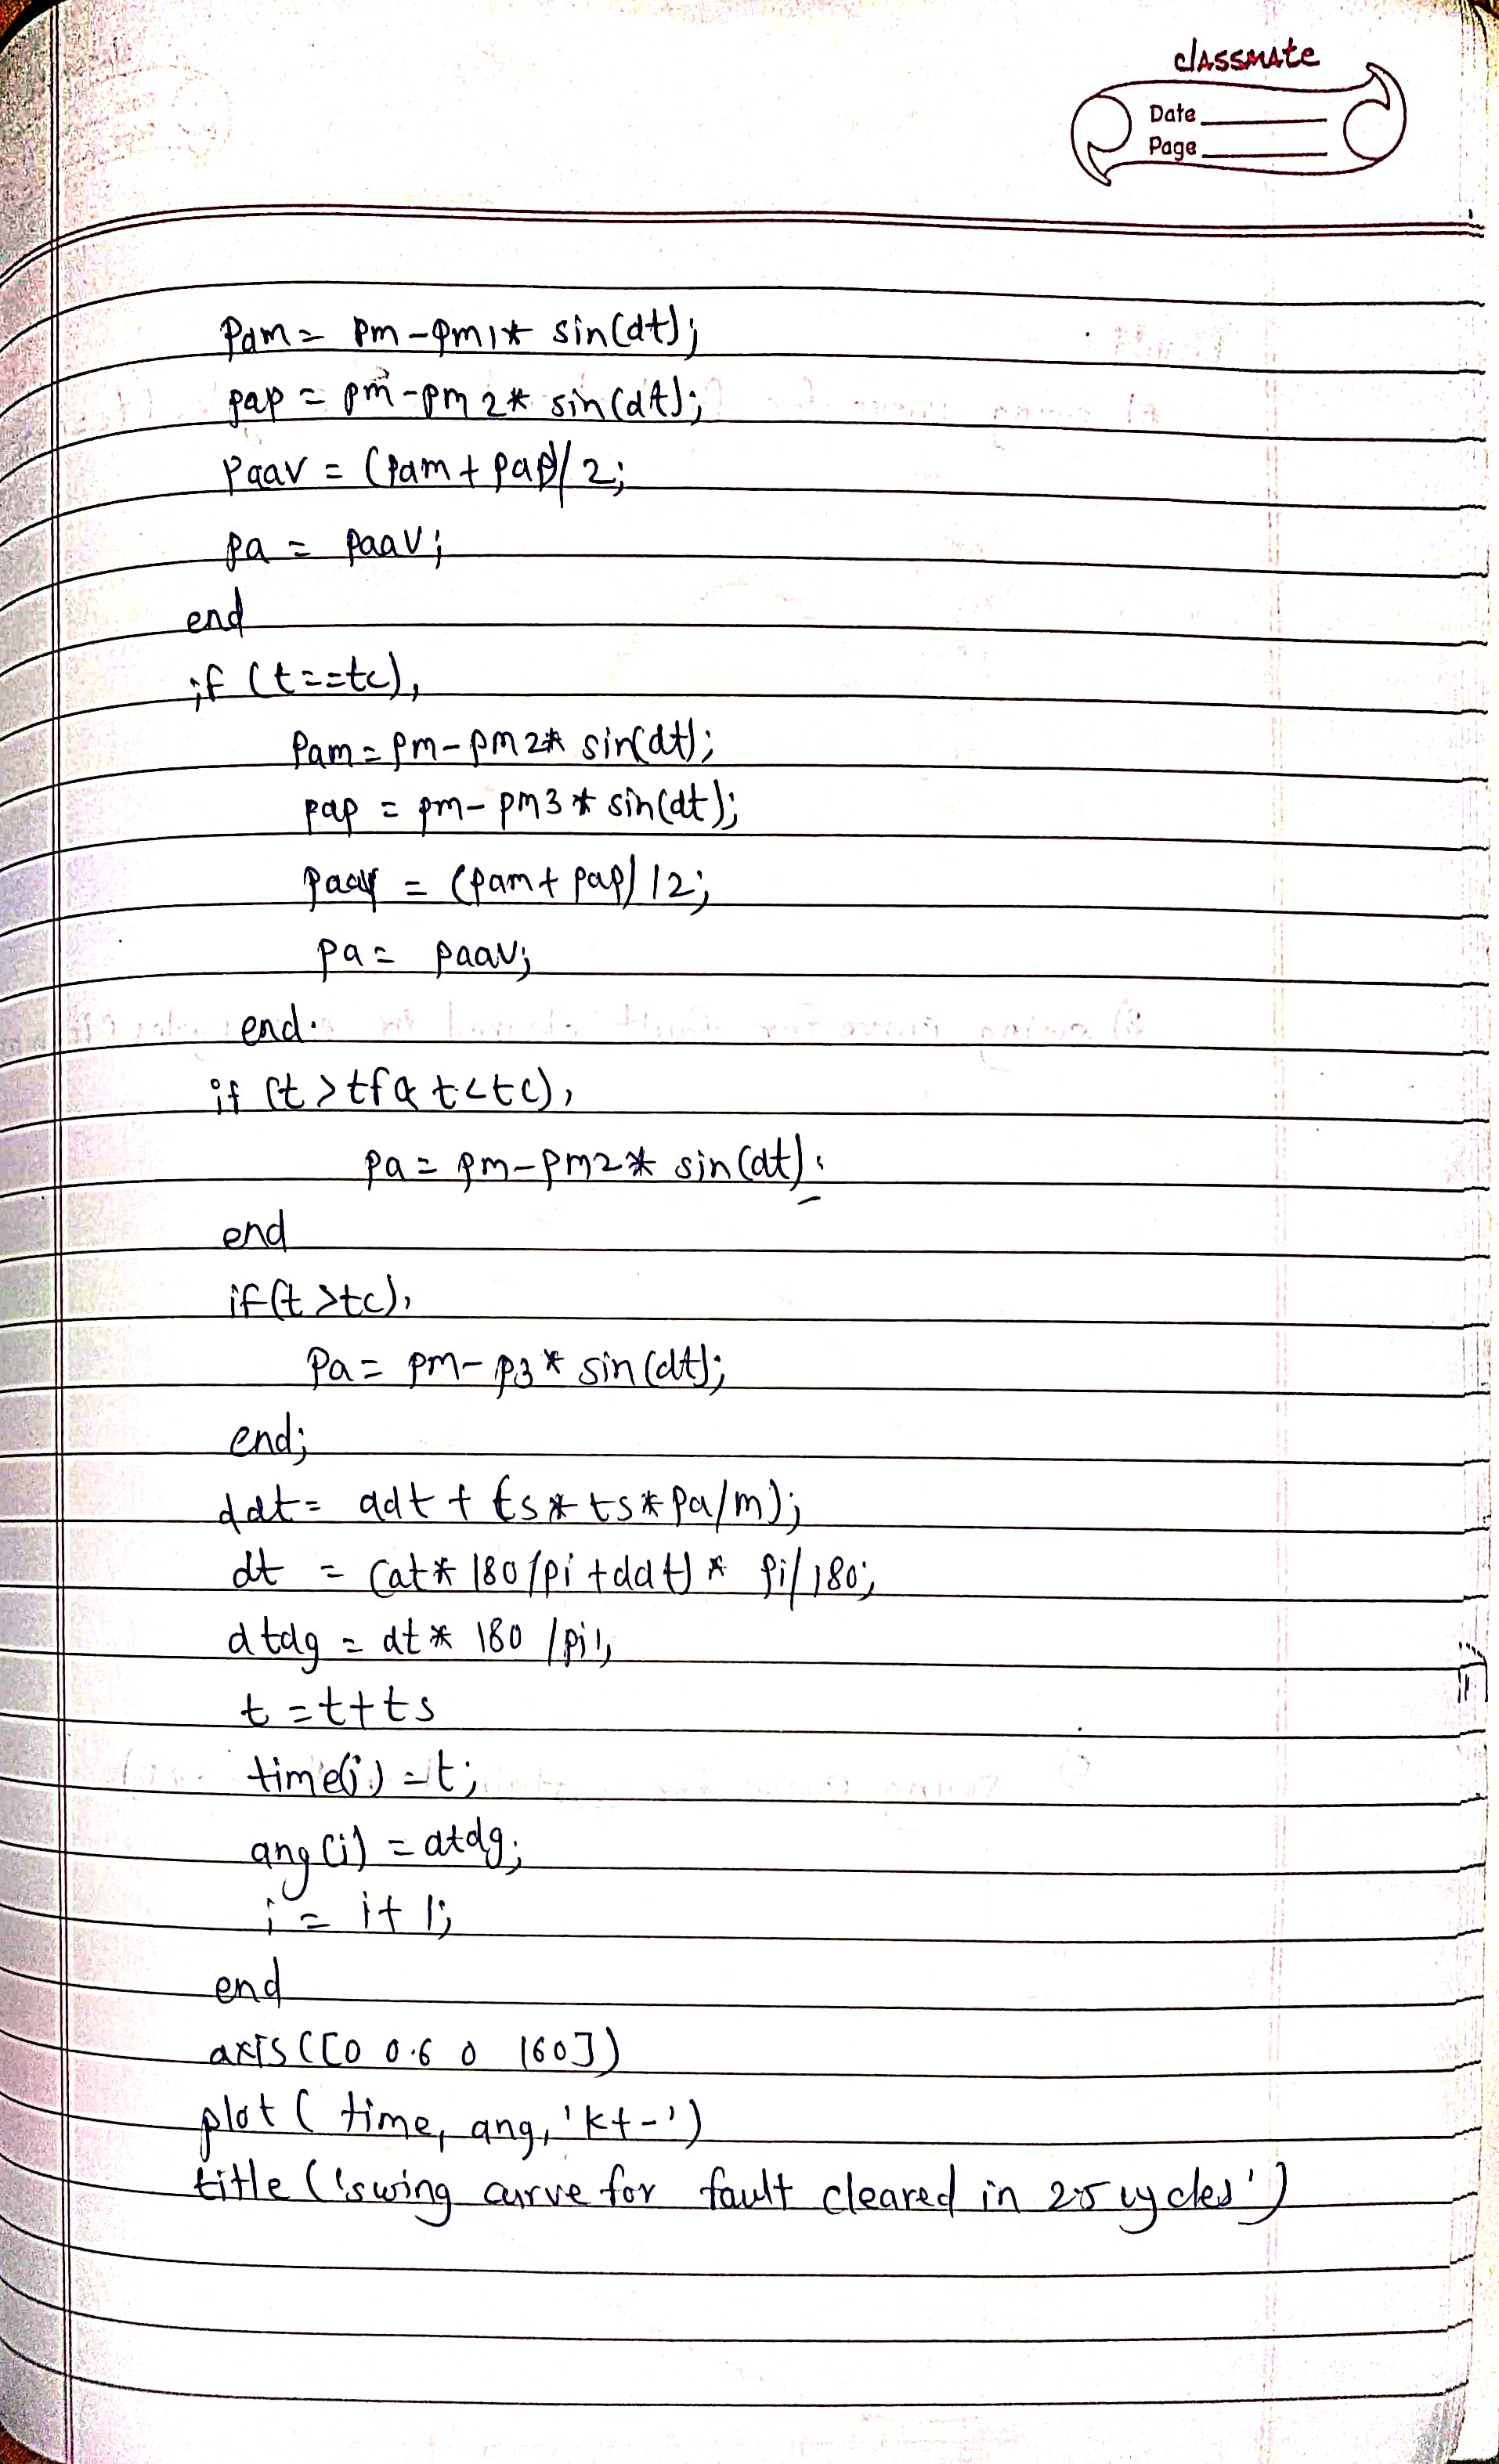 classmate
Date
Page
Pam = Pm - Pm1* sin(dt);
pap = pm - pm 2* sin(dt);
Paav = (Pam + pap)/2;
pa = paav;
end
if (t==tc),
Pam = Pm - Pm 2* sin(dt);
pap = pm - pm3 * sin(dt);
paav = (Pam + pap) 12;
pa = paav;
end.
if (t > tf & t<tc),
pa = pm-pm2* sin(dt);
end
if(t >tc),
Pa = pm- p3 * sin(dt);
end;
ddt = ddt + (ts * ts * Pa/m);
dt = (dt* 180/pi + ddt) * pi/180;
dtdg = dt * 180 /pi;
t = t+ts
time(i) = t;
ang(i) = dtdg;
i = i+1;
end
axis([0 0.6 0 160])
plot( time, ang, 'k+-')
title('swing curve for fault cleared in 2.5 cycles')